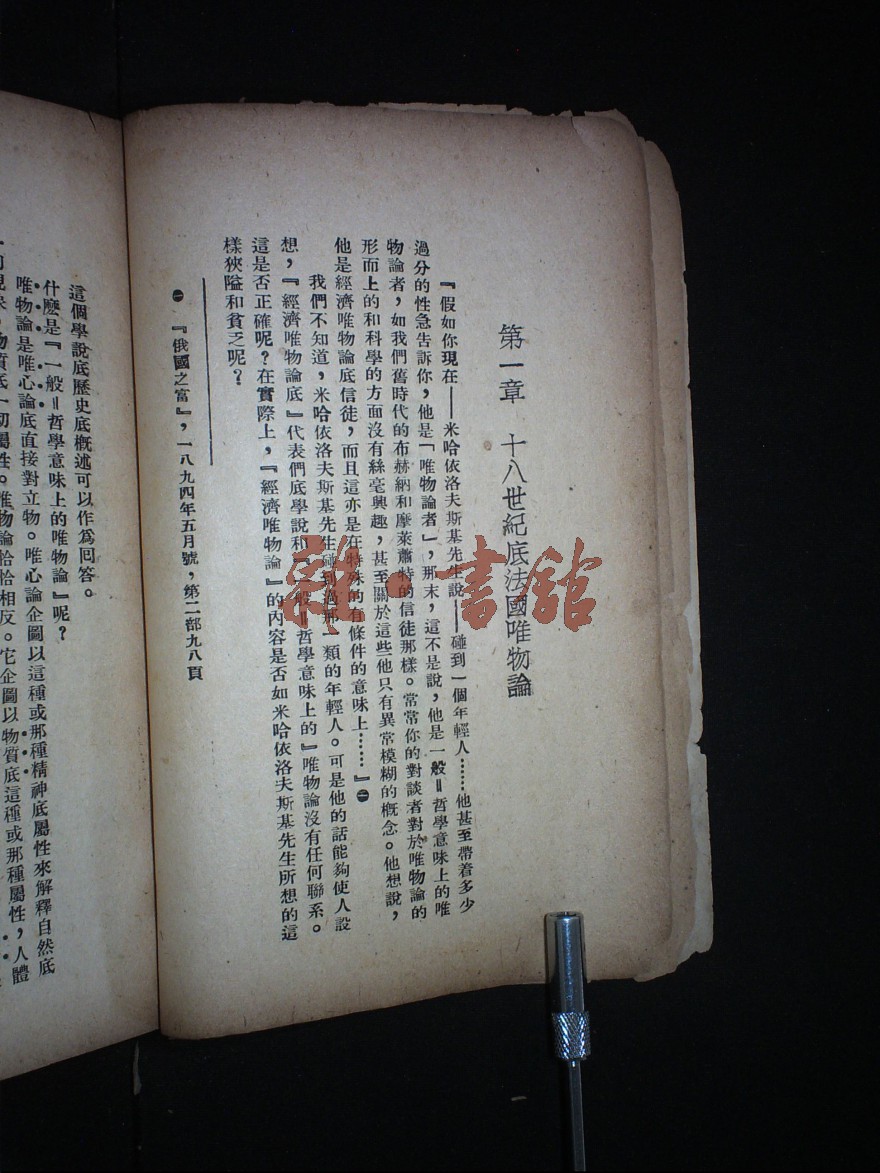 第一章　十八世紀底法國唯物論
『假如你現在——米哈依洛夫斯基先生說——碰到一個年輕人……他甚至帶着多少
過分的性急告訴你，他是「唯物論者」，那末，這不是說，他是一般＝哲學意味上的唯
物論者，如我們舊時代的布赫納和摩萊蕭特的信徒那樣。常常你的對談者對於唯物論的
形而上的和科學的方面沒有絲毫興趣，甚至關於這些他只有異常模糊的概念。他想說，
他是經濟唯物論底信徒，而且這亦是在特殊的有條件的意味上……』㊀
我們不知道，米哈依洛夫斯基先生碰到過那一類的年輕人。可是他的話能夠使人設
想，『經濟唯物論底』代表們底學說和『一般＝哲學意味上的』唯物論沒有任何聯系。
這是否正確呢？在實際上，『經濟唯物論』的內容是否如米哈依洛夫斯基先生所想的這
樣狹隘和貧乏呢？
㊀　『俄國之富』，一八九四年五月號，第二部九八頁
這個學說底歷史底概述可以作爲回答。
什麽是『一般＝哲學意味上的唯物論』呢？
唯物論是唯心論底直接對立物。唯心論企圖以這種或那種精神底屬性來解釋自然底
物質底一切屬性。唯物論恰恰相反。它企圖以物質底這種或那種屬性，人體
雜·書館